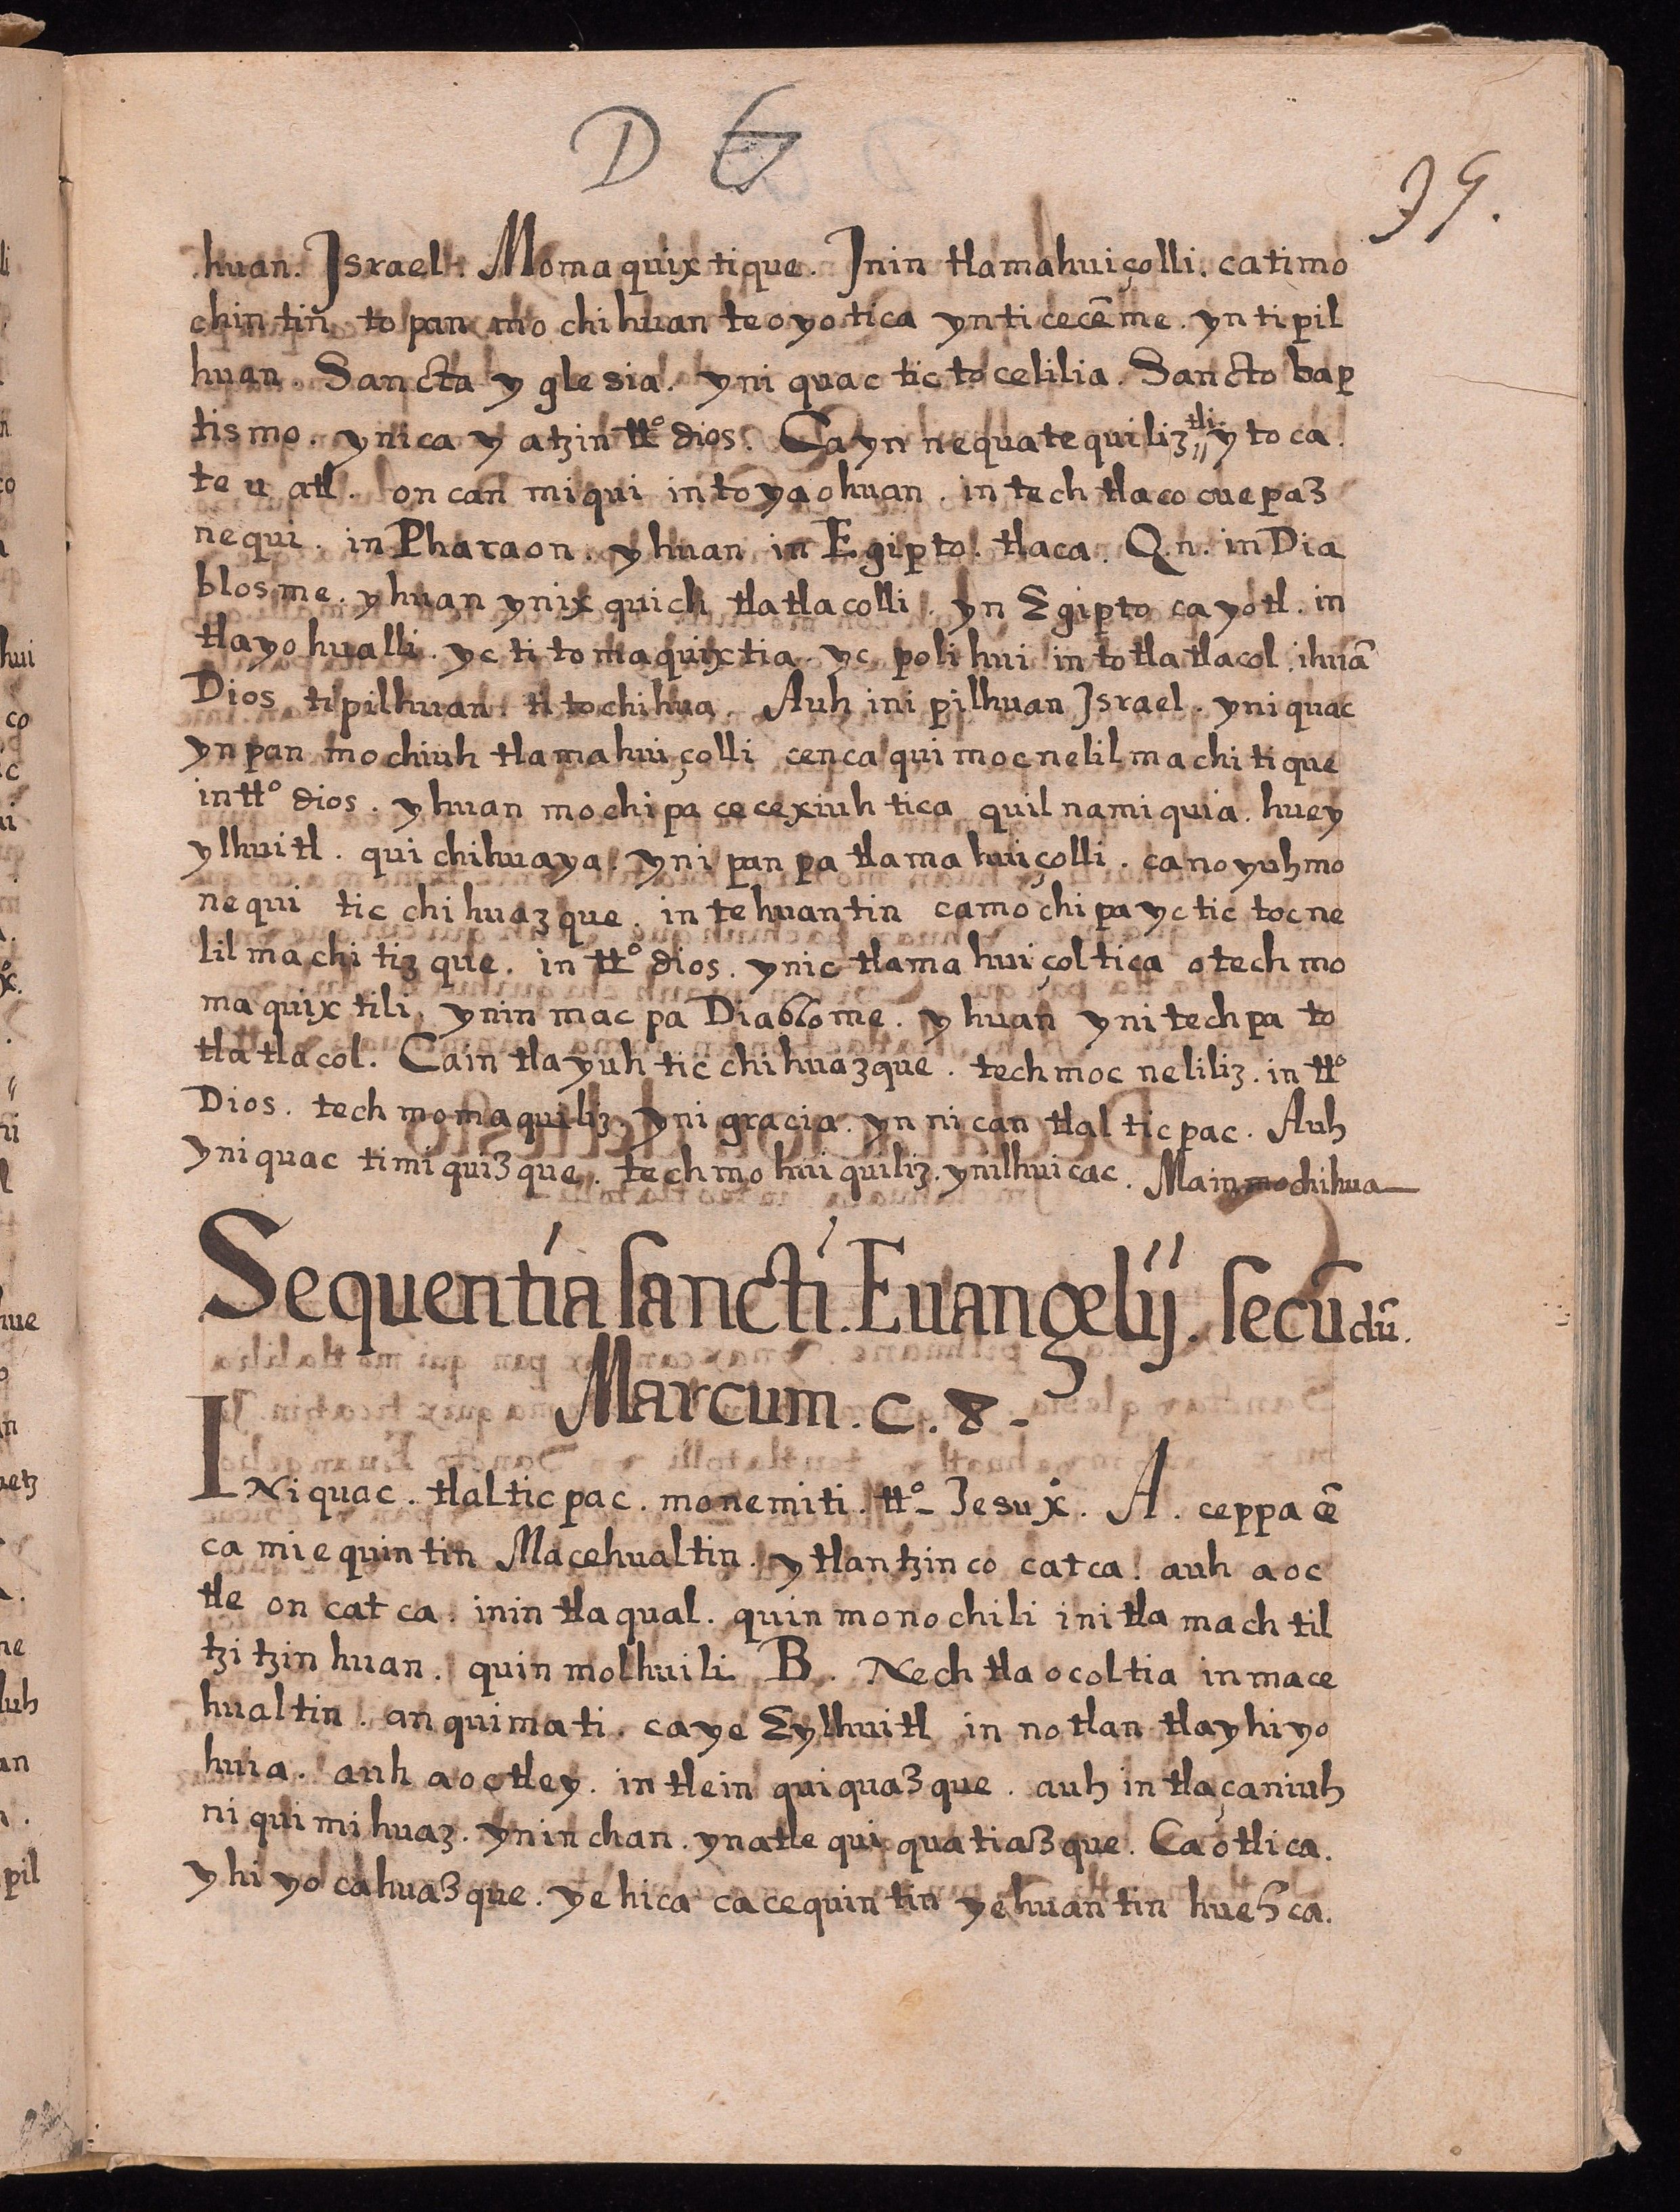 D G
39.
huan. Jsrael. Momaquixtique. Jnin tlamahuiçolli. catimo
chintin̄ topan mochihuan teoyotica ynticecēme. yntipil
huan. Sancta yglesia. yniquac tictocelilia. Sancto bap
tismo. ynica yatzin tt.º dios. Cayn nequatequiliztli ytoca.
teuatl. oncan miqui intoyaohuan. intechtlacocuepaz
nequi. in Pharaon. yhuan in Egipto. tlaca. Q.n. in Dia
blosme. yhuan ynixquich tlatlacolli. yn Egipto cayotl. in
tlayohualli. yc titomaquixtia. yc polihui intotlatlacol. ihuā
Dios tipilhuan. tl tochihua. Auh inipilhuan Jsrael. yniquac
ynpan mochiuh tlamahuiçolli cenca quimocnelilmachitique
intt.º dios. yhuan mochipa cecexiuhtica quilnamiquia. huey
ylhuitl. quichihuaya. ynipanpa tlamahuiçolli. canoyuhmo
nequi ticchihuazque. intehuantin camochipa yctictocne
lilmachitizque. in tt.º dios. ynic tlamahuiçoltica otechmo
maquixtili. yninmacpa Diablome. yhuan ynitechpa to
tlatlacol. Cain tlayuh ticchihuazque. techmocneliliz. in tt.º
Dios. techmomaquiliz ynigracia. yn nican tlalticpac. Auh
yniquac timiquizque. techmohuiquiliz. ynilhuicac. Mainmochihua
Sequentia sancti. Euangelij. secūdū.
Marcum. c. 8.
INiquac. tlalticpac. monemiti. tt.º Jesu x̊. A. ceppa cē
ca miequintin Macehualtin. ytlantzinco catca. auh aoc
tle oncatca. inin tlaqual. quinmonochili initlamachtil
tzitzinhuan. quinmolhuili. B. Nechtlaocoltia inmace
hualtin. anquimati. caye Eylhuitl innotlan tlayhiyo
huia. auh aoctley. intlein quiquazque. auh intlaçaniuh
niquimihuaz. yninchan. ynatle quiquatiazque. Caotlica.
yhiyocahuazque. yehica cacequintin yehuantin huehca.